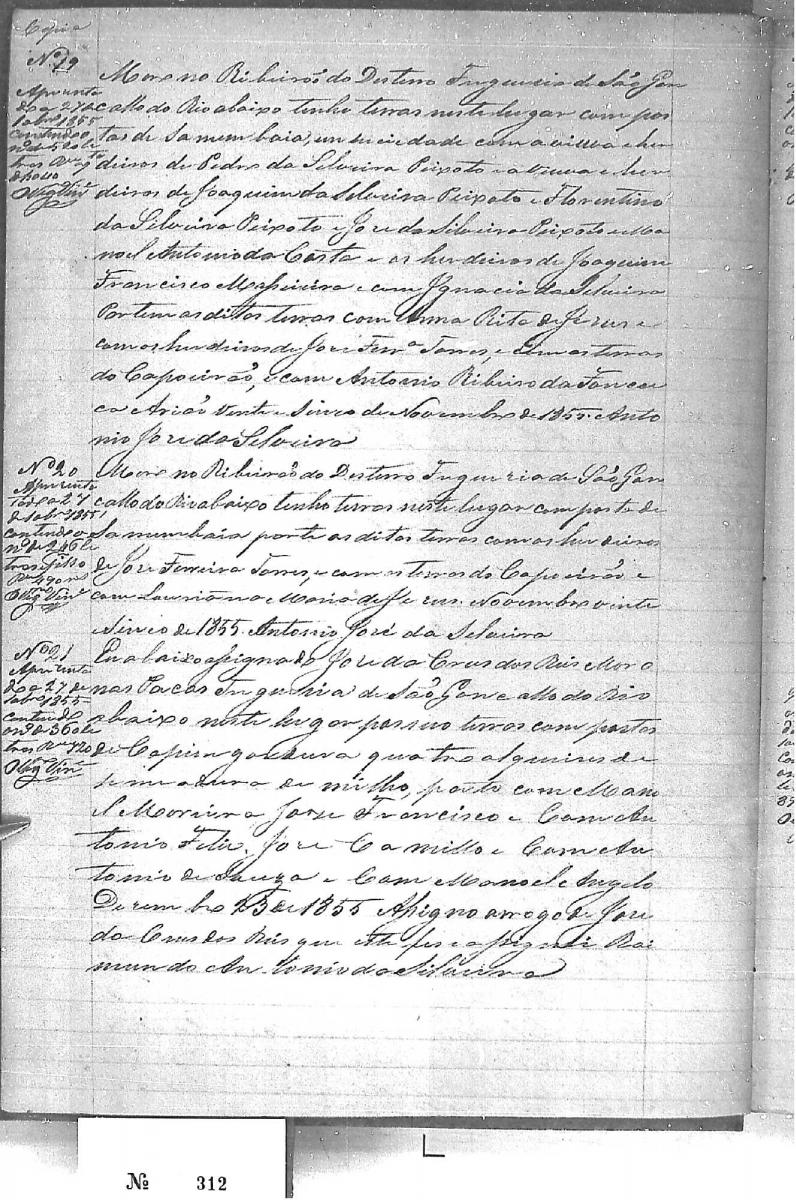 Copia
Nº 19
Apresenta
do a 27 de
1855
contendo o
nº de 520 le
tras
Moro no Ribeirão do Desterro Freguesia de São Gon
callo do Rio abaixo tenho terras neste lugar com pas
tas de Samembaia, em sociedade com a viuva e her
deiros de Pedro da Silveira Peixoto e a viuva e her
deiros de Joaquim da Silveira Peixoto e Florentino
da Silveira Peixoto e Jose da Silveira Peixoto e Ma
noel Antonio da Costa e os herdeiros de Joaquim
Francisco e com Ignacio da Silveira
Partem as ditas terras com Anna Rita de Jezus e
com os herdeiros de Jose Ferrª Torres, e com as terras
do Capoeirão, e com Antonio Ribeiro da Fonce
ca Arião Vinte e Sinco de Novembro de 1855. Anto
nio Jose da Silveira
Nº 20
Apresenta
do a 27
de 1855
contendo o
nº de 246 le
tras
Moro no Ribeirão do Desterro Freguesia de São Gon
callo do Rio abaixo tenho terras neste lugar com pasto de
Samembaia parte as ditas terras com os herdeiros
de Jose Ferreira Torres, e com as terras do Capoeirão e
com Maria de Jezus. Novembro vinte
e Sinco de 1855. Antonio José da Silveira
Nº 21
Apresenta
do a 27 de
1855
contendo
o nº de 360 le
tras
Eu abaixo asignado Jose da Crus dos Reis Moro
nas Pacas Freguesia de São Goncallo do Rio
abaixo neste lugar possuo terras com pastos
de Capim gordura quatro alqueires de
semeadura de milho, parte com Mano
el Moreira Jose Francisco e Com An
tonio Felis, Jose Camillo e Com An
tonio de Souza e Com Manoel Angelo
Dezembro 23 de 1855 Asigno arrogo de Jose
da Crus dos Reis que este fes e asignei Rai
mundo Antonio da Silveira
Nº 312